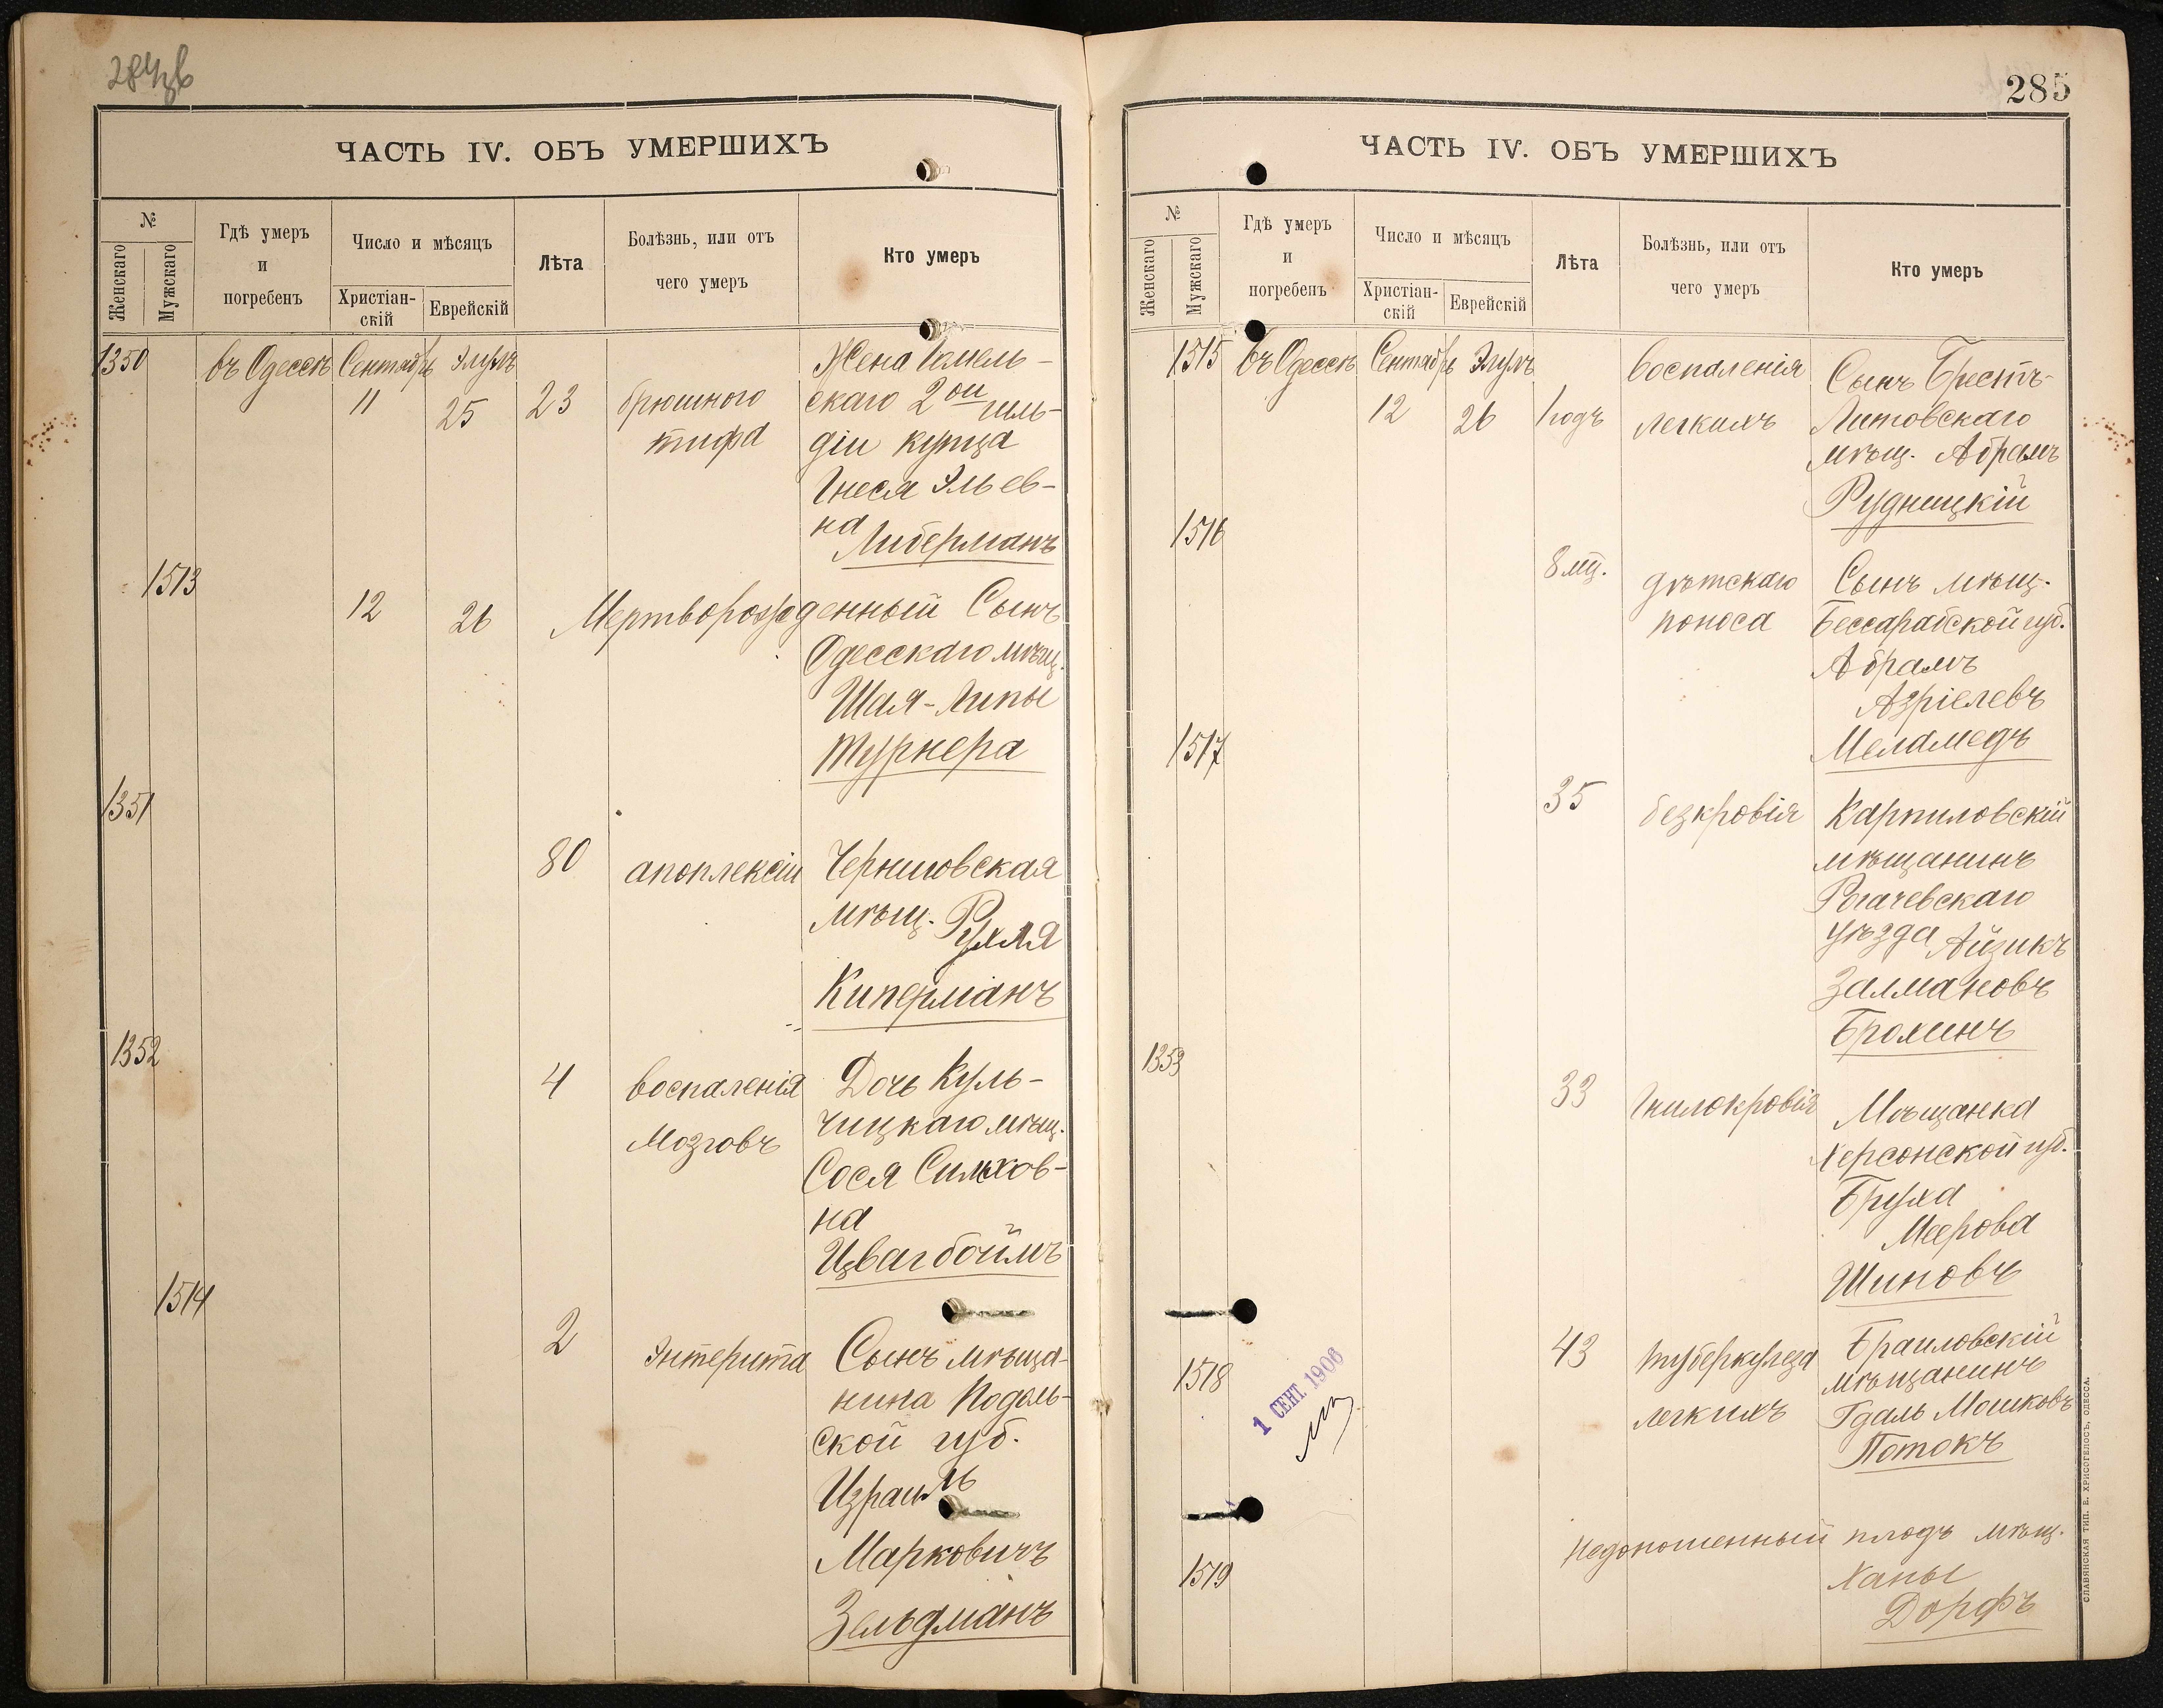 284об
ЧАСТЬ IV. ОБЪ УМЕРШИХЪ
№
Женскаго
Мужскаго
Гдѣ умеръ
и
погребенъ
Число и мѣсяцъ
Христіан-
скій
Еврейскій
Лѣта
Болѣзнь, или отъ
чего умеръ
Кто умеръ
1350 въ Одессѣ Сентябрь Элулъ Жена
11 25 23 брюшного скаго 2ой гиль-
тифа діи купца
Гнеся Эльев-
на
Либерманъ
1513
12 26 Мертворожденный Сынъ
Одесскаго мѣщ.
Шая-Липы
Турнера
1351
80 апоплексіи Черниговская
мѣщ. Рухля
Киперманъ
1352
4 воспаленія Дочь Куль-
Мозговъ чицкаго мѣщ.
Сося Симхов-
на
Цвагбоймъ
1514
2 Энтерита Сынъ мѣща-
нина Подоль-
ской губ.
Израиль
Марковичъ
Зельдманъ
285
ЧАСТЬ IV. ОБЪ УМЕРШИХЪ
№
Женскаго
Мужскаго
Гдѣ умеръ
и
погребенъ
Число и мѣсяцъ
Христіан-
скій
Еврейскій
Лѣта
Болѣзнь, или отъ
чего умеръ
Кто умеръ
1515 въ Одессѣ Сентябрь Элулъ воспаленія Сынъ Брестъ-
12 26 1 годъ легкихъ Литовскаго
мѣщ. Абрамъ
Рудницкій
1516
8 мц. дѣтскаго Сынъ мѣщ.
поноса Бессарабской губ.
Абрамъ
Азріелевъ
Меламедъ
1517
35 безкровія Карпиловскій
мѣщанинъ
Рогачевскаго
уѣзда Айзикъ
Залмановъ
Брохинъ
1353
33 Гнилокровія Мѣщанка
Херсонской губ.
Бруха
Меерова
Шиновъ
1518
43 туберкулеза Браиловскій
легкихъ мѣщанинъ
Гдаль Мошковъ
Потокъ
1 СЕНТ. 1906
1519
Недоношенный плодъ мѣщ.
Ханы
Дорфъ
СЛАВЯНСКАЯ ТИП. Е. ХРИСОГЕЛОСЪ, ОДЕССА.